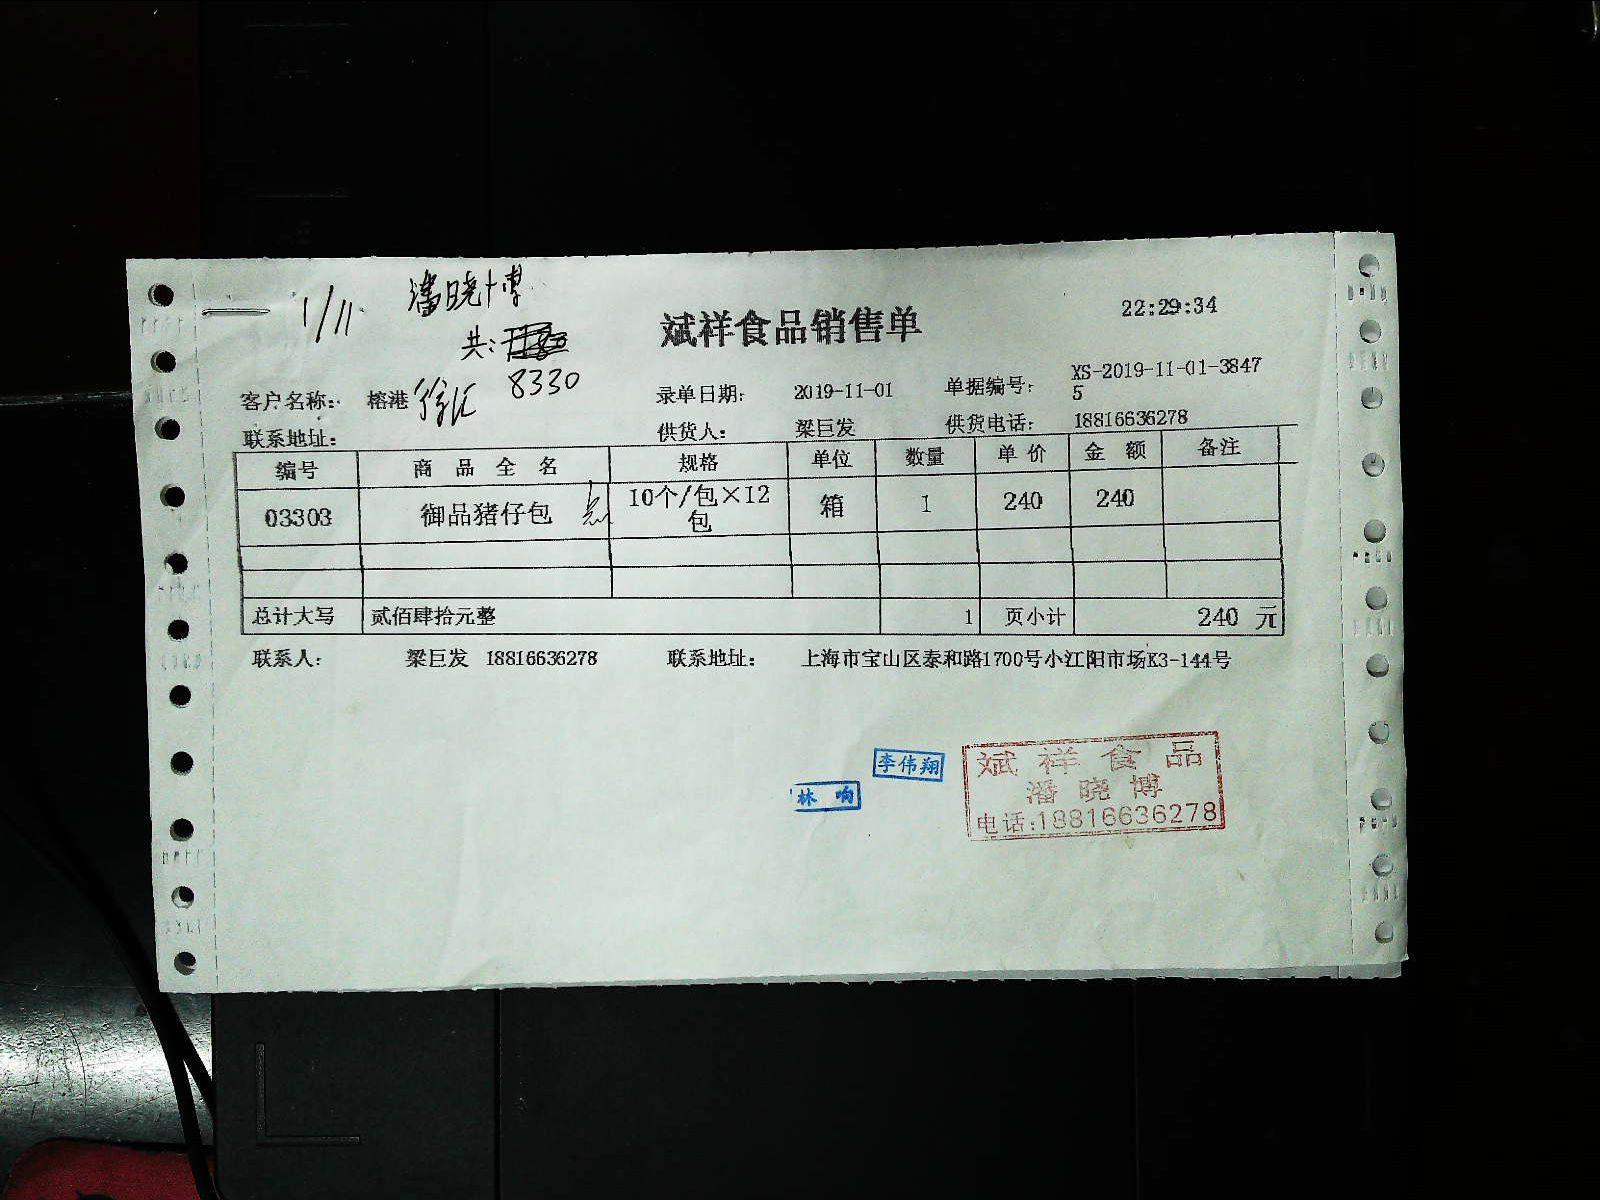 1/11 潘晓博
共: 8330
斌祥食品销售单
22:29:34
客户名称: 榕港 徐汇 录单日期: 2019-11-01 单据编号: XS-2019-11-01-3847
5
联系地址: 供货人: 梁巨发 供货电话: 18816636278
编号 商品全名 规格 单位 数量 单价 金额 备注
03303 御品猪仔包 10个/包×12包 箱 1 240 240
总计大写 贰佰肆拾元整 1 页小计 240 元
联系人: 梁巨发 18816636278 联系地址: 上海市宝山区泰和路1700号小江阳市场K3-144号
李伟翔
林响
斌祥食品
潘晓博
电话:18816636278